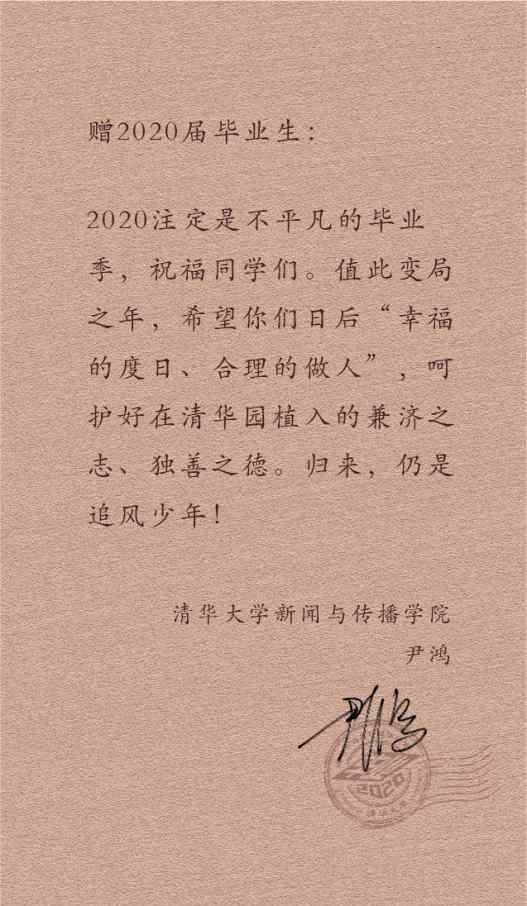 赠2020届毕业生：
2020注定是不平凡的毕业
季，祝福同学们。值此变局
之年，希望你们日后“幸福
的度日、合理的做人”，呵
护好在清华园植入的兼济之
志、独善之德。归来，仍是
追风少年！
清华大学新闻与传播学院
尹鸿
尹鸿
2020